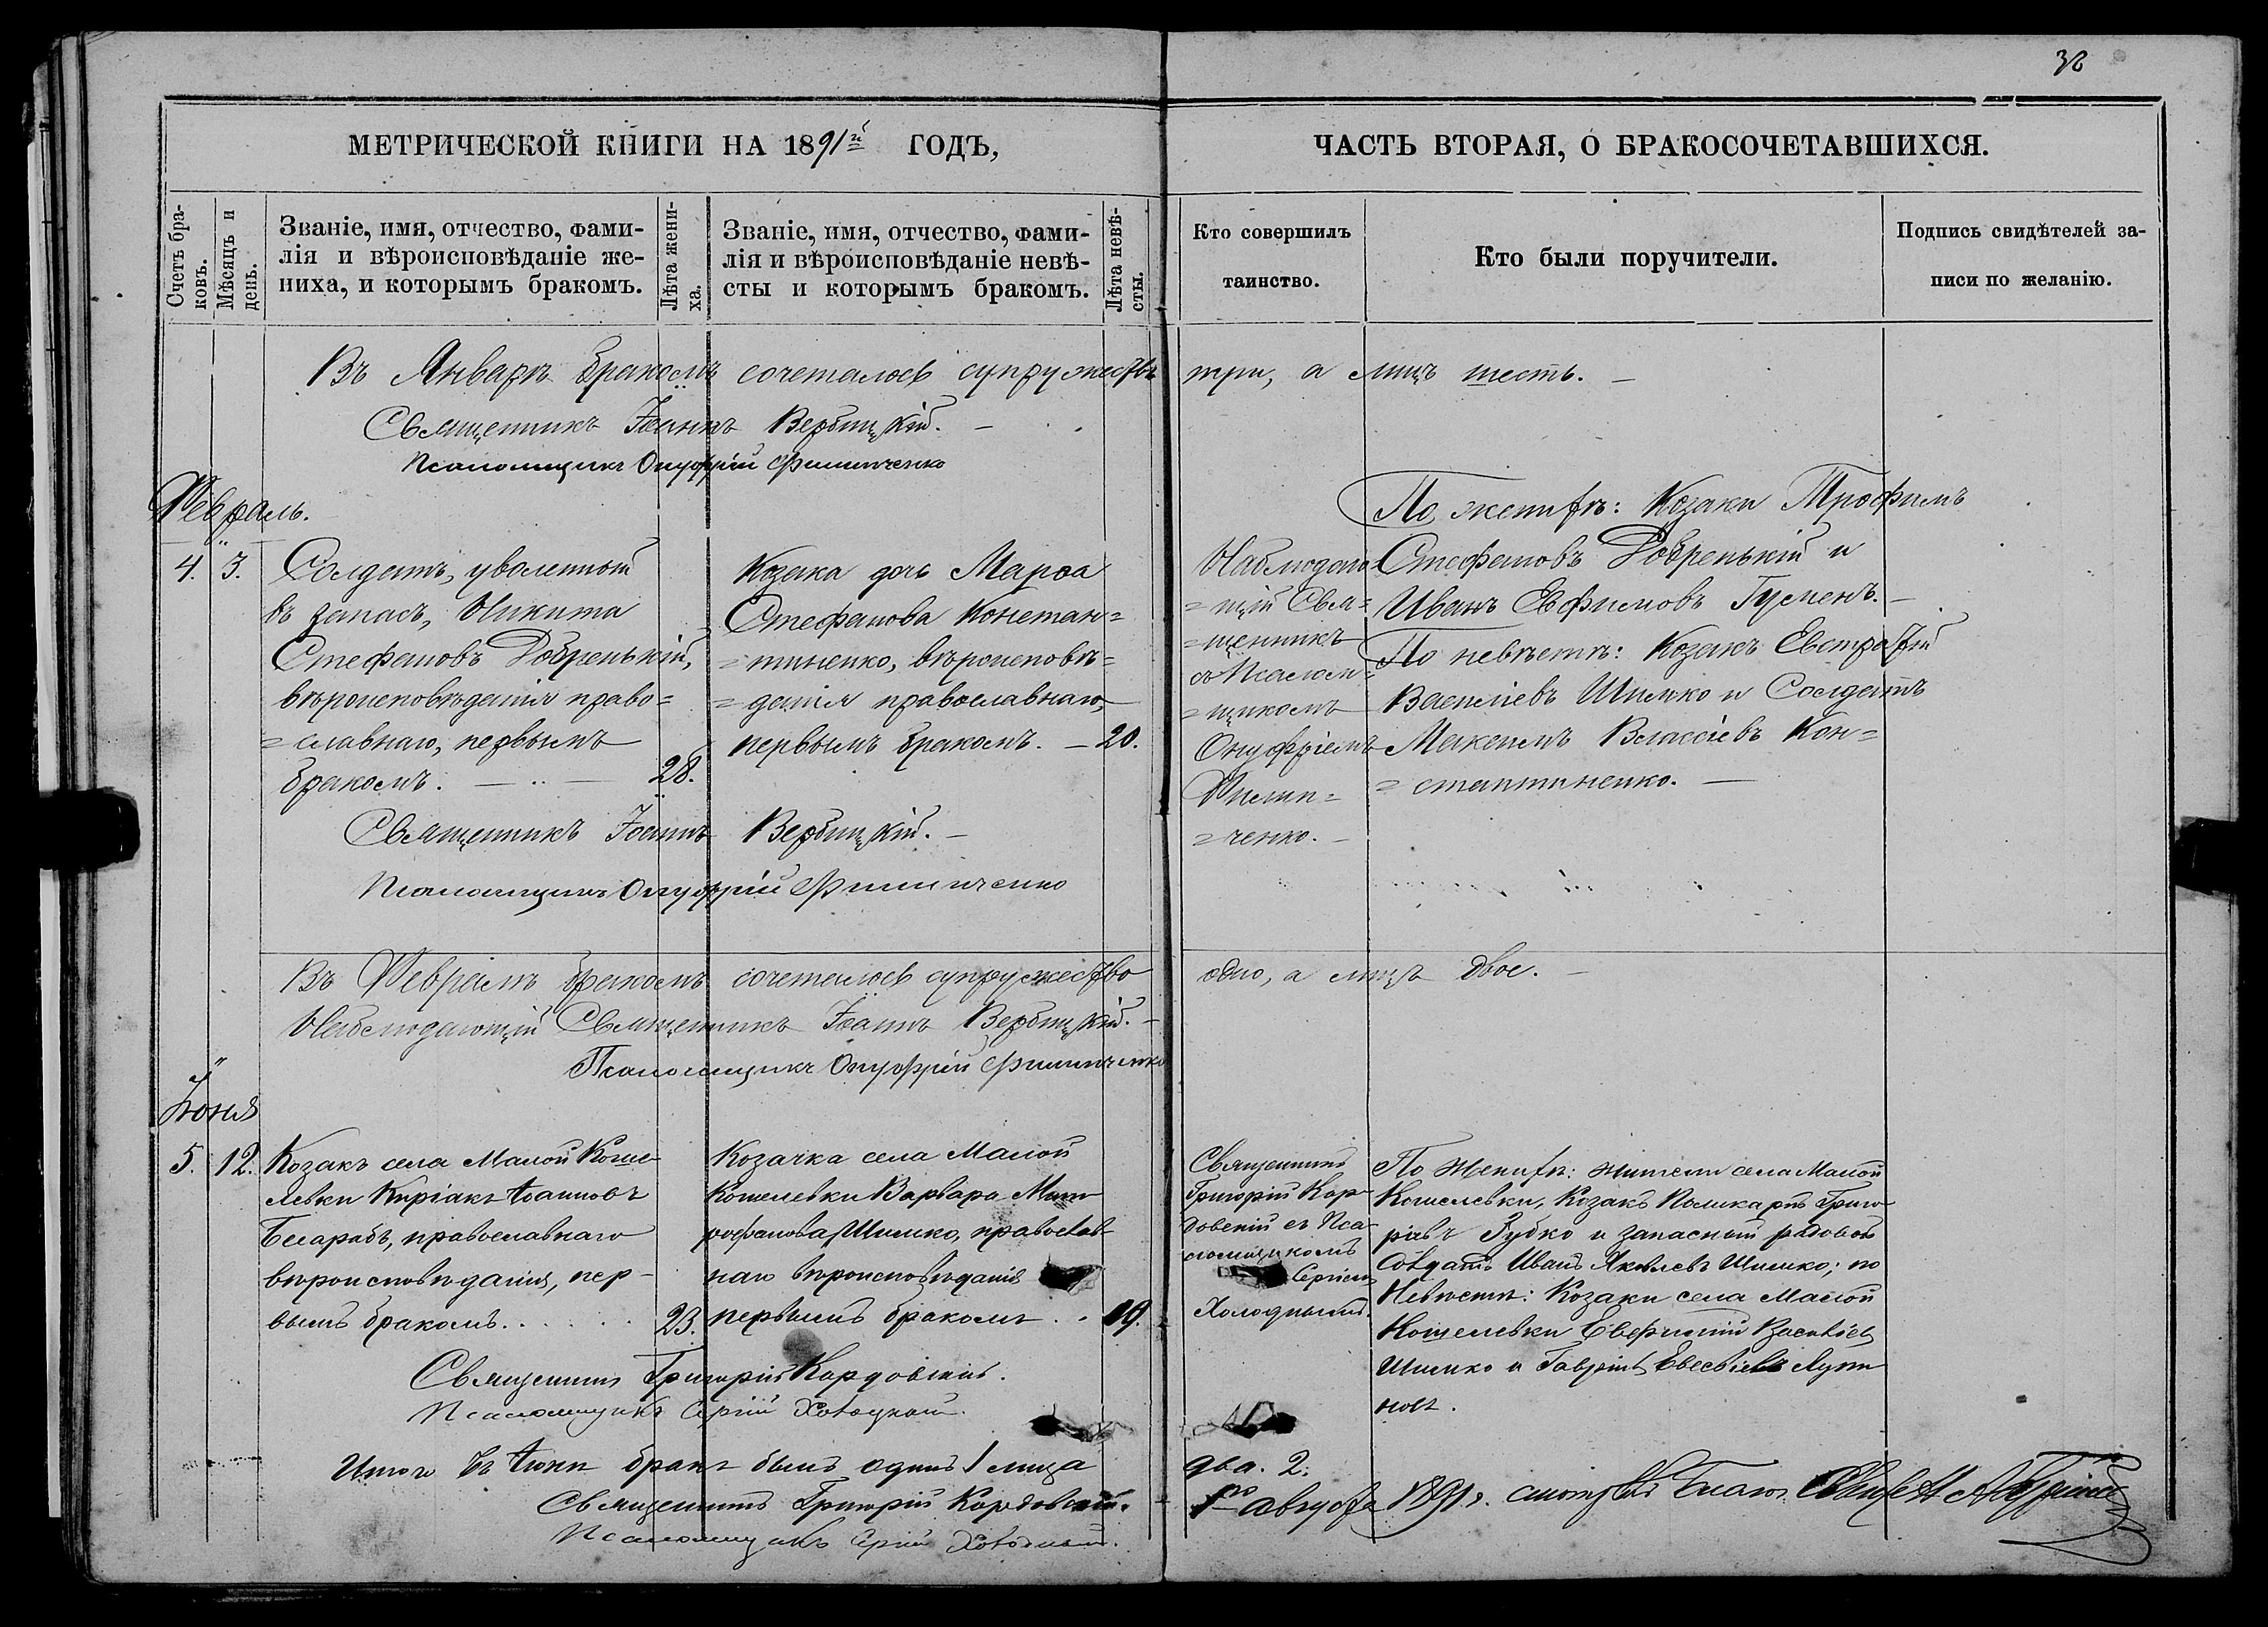 38
МЕТРИЧЕСКОЙ КНИГИ НА 1891й ГОДЪ,
ЧАСТЬ ВТОРАЯ, О БРАКОСОЧЕТАВШИХСЯ.
Счетъ бра-
ковъ.
Мѣсяцъ и
день.
Званіе, имя, отчество, фами-
лія и вѣроисповѣданіе же-
ниха, и которымъ бракомъ.
Лѣта жени-
ха.
Званіе, имя, отчество, фами-
лія и вѣроисповѣданіе невѣ-
сты и которымъ бракомъ.
Лѣта невѣ-
сты.
Кто совершилъ
таинство.
Кто были поручители.
Подпись свидѣтелей за-
писи по желанію.
Въ Январѣ бракомъ сочеталось супружествъ три, а лицъ шесть. –
Священникъ Іоаннъ Вербицкій. –
Псаломщикъ Онуфрій Филипченко
Февраль.
4. 3.
Солдатъ, уволенный
въ запасъ, Никита
Стефановъ Добренькій,
вѣроисповѣданія право=
=славнаго, первымъ
бракомъ. —
28.
Козака дочь Марѳа
Стефанова Констан=
=тиненко, вѣроисповѣ=
=данія православнаго,
первымъ бракомъ. –
20.
Наблюдаю=
=щій Свя=
=щенникъ
съ Псалом=
=щикомъ
Онуфріемъ
Филип=
=ченко. –
По женихѣ: Козаки Трофимъ
Стефановъ Добренькій и
Иванъ Евфимовъ Гуменъ. –
По невѣстѣ: Козакъ Евстратій
Василіевъ Шимко и Солдатъ
Максимъ Власіевъ Кон=
=стантиненко. —
Священникъ Іоаннъ Вербицкій. –
Псаломщикъ Онуфрій Филипченко
Въ Февралѣ бракомъ сочеталось супружество одно, а лицъ двое. –
Наблюдающій Священникъ Іоаннъ Вербицкій. –
Псаломщикъ Онуфрій Филипченко
Іюня
5. 12.
Козакъ села Малой Коше-
левки Киріакъ Іоанновъ
Бѣларабъ, православнаго
вѣроисповѣданія, пер-
вымъ бракомъ. . . . . .
23.
Козачка села Малой
Кошелевки Варвара Мит
рофанова Шимко, православ-
наго вѣроисповѣданія
первымъ бракомъ . .
19.
Священникъ
Григорій Кор-
довскій съ Пса-
ломщикомъ
Сергіемъ
Холоднымъ.
По Женихѣ: жители села Малой
Кошелевки, Козакъ Поликарпъ Григо-
ріевъ Губко и запасный рядовой
Солдатъ Иванъ Яковлевъ Шимко; по
Невѣстѣ: Козаки села Малой
Кошелевки Евфимій Василіевъ
Шимко и Гавріилъ Евсевіевъ
Священникъ Григорій Кордовскій.
Псаломщикъ Сергій Холодный.
Итого въ Іюнѣ бракъ былъ одинъ 1 лица два. 2.
Священникъ Григорій Кордовскій.
Псаломщикъ Сергій Холодный.
1го августа 1891 г.